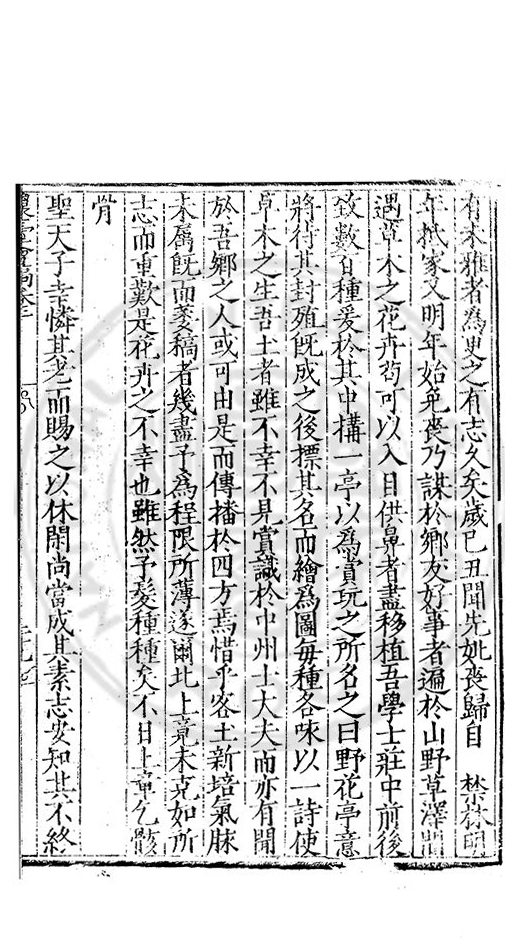 有未雅者為史之有志久矣歲己丑聞先妣喪歸自　禁林明
年抵家又明年始免喪乃謀於鄉友好事者遍於山野草澤間
遇草木之花卉茍可以入目供鼻者盡移植吾學士莊中前後
致數百種爰於其中構一亭以為賞玩之所名之曰野花亭意
將待其封殖既成之後標其名而繪為圖每種各咏以一詩使
草木之生吾土者雖不幸不見賞識於中州士大夫而亦有聞
於吾鄉之人或可由是而傳播於四方焉惜乎客土新培氣脉
未屬既而萎稿者幾盡予為程限所薄遂爾北上竟未克如所
志而重歎是花卉之不幸也雖然予髮種種矣不日上章乞骸
骨
聖天子幸憐其老而賜之以休閑尚當成其素志安知其不終